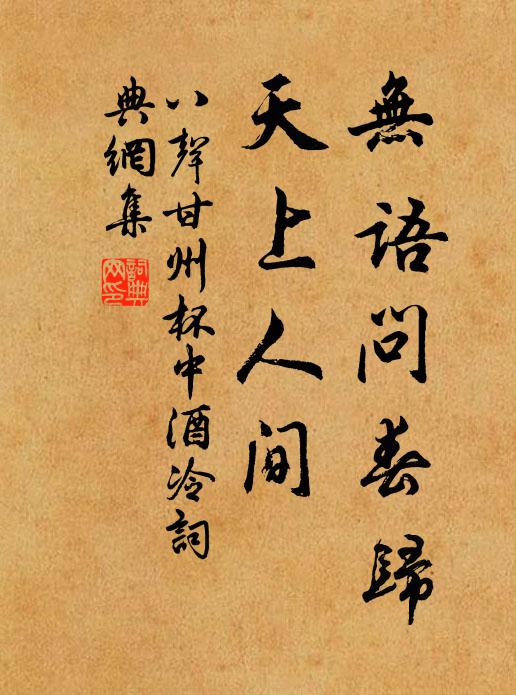 無語問春歸
天上人間
八聲甘州杯中酒冷詞
典網集
詞典網印